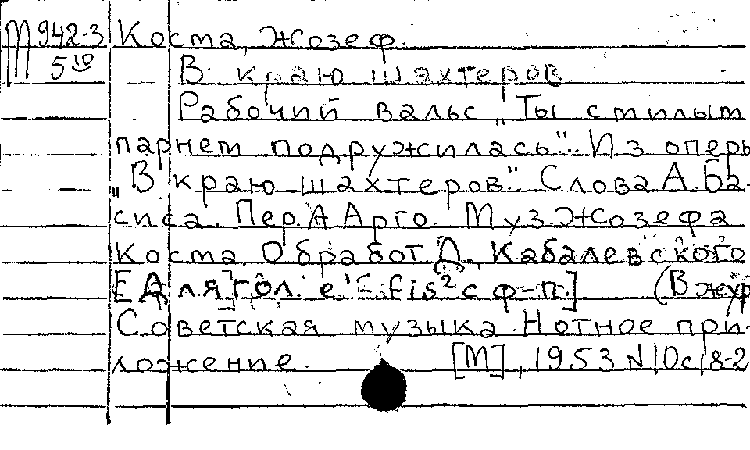 М 942-3 Коста, Жозеф.
5 10 В краю шахтеров
Рабочий вальс „Ты с милым
парнем подружилась". Из оперы
„В краю шахтеров". Слова А. Ба-
сиса. Пер. А Арго. Муз. Жозефа
Коста. Обработ. Д. Кабалевского
[Для] гол. e'-fis² с ф-п.] (В жур
Советская музыка. Нотное при-
ложение. [М], 1953 N 10 с 18-2